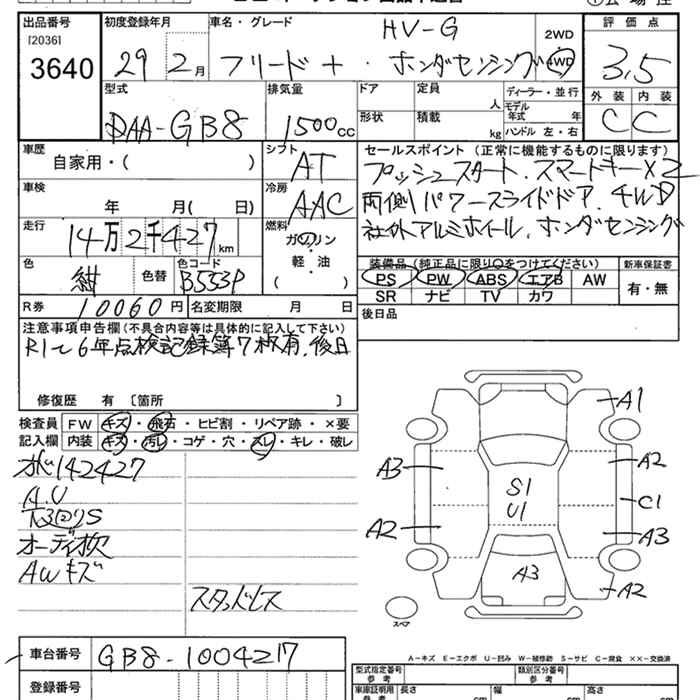 出品番号 初度登録年月 車名・グレード HV-G 2WD 評価点
[2036]
3640 29年2月 フリード + ・ホンダセンシング 4WD 3.5
型式 排気量 ドア 定員 人 ディーラー・並行 外装 内装
DAA-GB8 1500cc 形状 積載 kg モデル年式 年 ハンドル 左・右 C C
車歴 自家用・( ) シフト AT セールスポイント (正常に機能するものに限ります)
プッシュスタート、スマートキー×2
車検 年 月( 日) 冷房 AAC 両側パワースライドドア、4WD
走行 14万2千427km 燃料 ガソリン・軽・油( ) 社外アルミホイール、ホンダセンシング
色 紺 色替 色コード B553P 装備品 (純正品に限り○をつけてください) 新車保証書
PS PW ABS エアB AW 有・無
SR ナビ TV カワ
R券 10060円 名変期限 月 日 後日品
注意事項申告欄(不具合内容等は具体的に記入して下さい)
R1〜6年点検記録簿7枚有、後日
修復歴 有 [箇所 ]
検査員 FW キズ・飛石・ヒビ割・リペア跡・×要
記入欄 内装 キズ・汚レ・コゲ・穴・スレ・キレ・破レ
142427
A.U
オーディオ欠
AWキズ
スタッドレス
A1
A3 A2
S1
U1
C1
A2 A3
A3
A2
スペア
A-キズ E-エクボ U-凹み W-補修跡 S-サビ C-腐食 ××-交換済
車台番号 GB8-1004217
登録番号
型式指定番号 参考 類別区分番号 参考
車庫証明用 参考 長さ cm 幅 cm 高さ cm